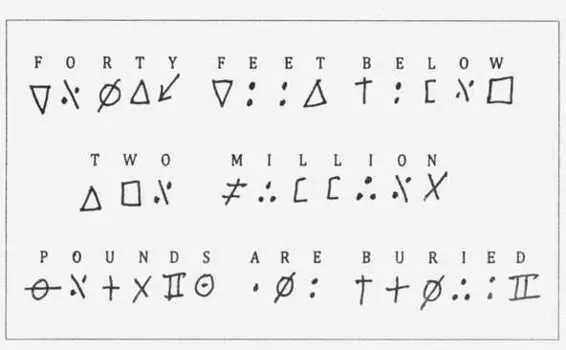 FORTY FEET BELOW
TWO MILLION
POUNDS ARE BURIED